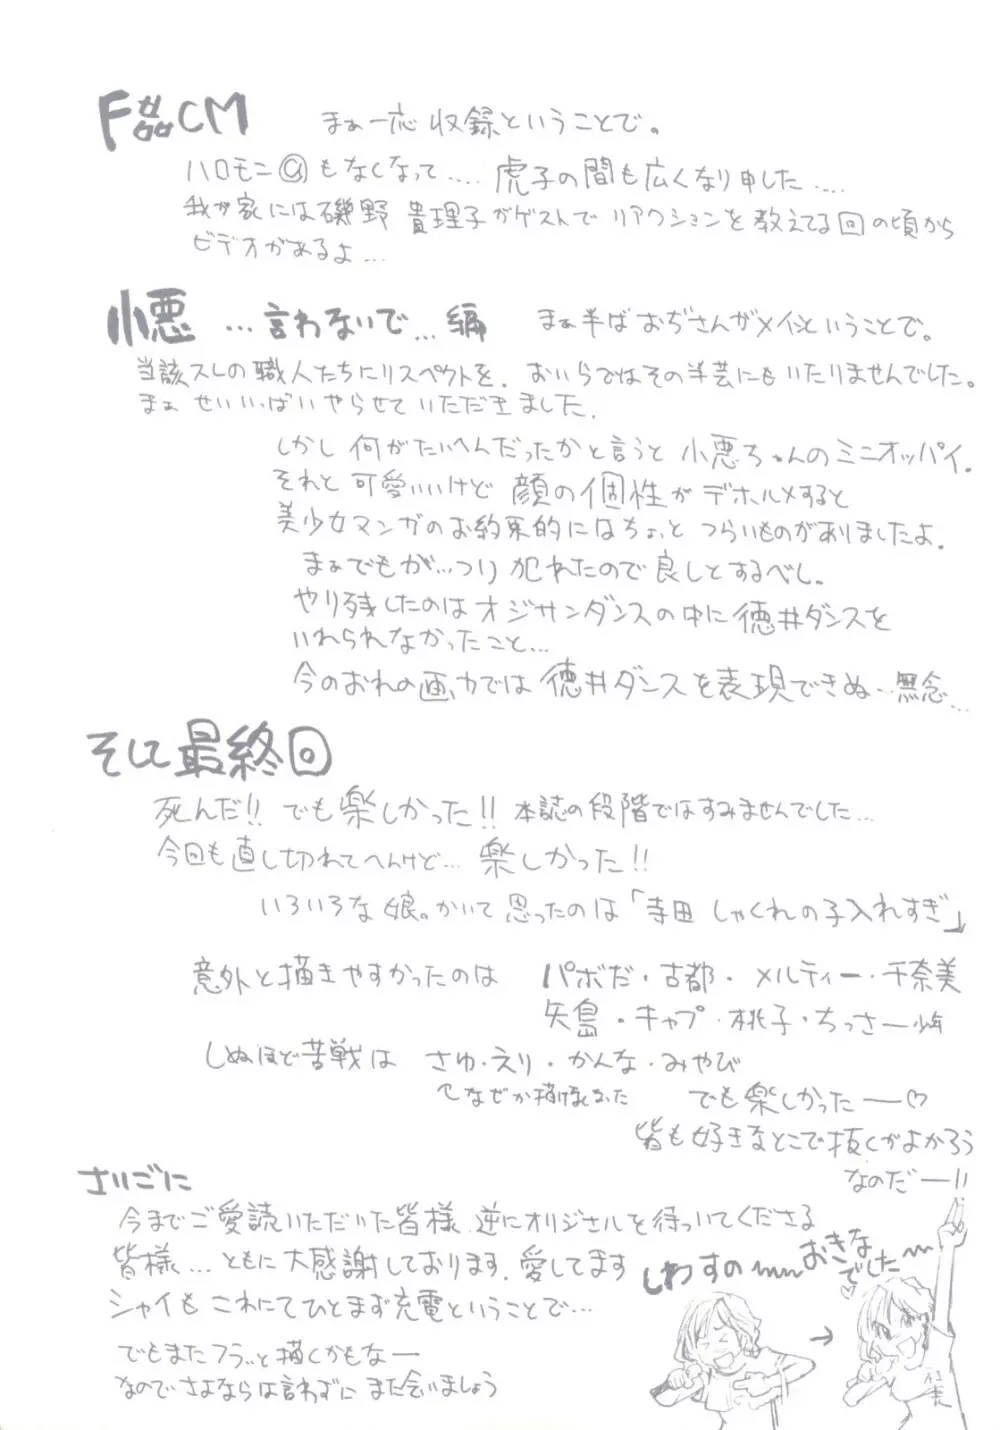 F姦CM まぁ一応 収録ということで。
ハロモニ@もなくなって.... 虎子の間も広くなり申した....
我が家には磯野 貴理子がゲストで リアクションを教えてる回の頃から
ビデオがあるよ...
小悪 ...言わないで...編 まぁ半ばおぢさんがメインということで。
当該スレの職人たちにリスペクトを。おいらではその半芸にもいたりませんでした。
まぁ せいいっぱいやらせていただきました。
しかし 何がたいへんだったかと言うと 小悪ちゃんのミニオッパイ。
それと 可愛いいけど 顔の個性がデホルメすると
美少女マンガのお約束的にはちょっと つらいものがありましたよ。
まぁでもが...つり 犯れたので良しとするべし。
やり残したのはオジサンダンスの中に徳井ダンスを
いれられなかったこと...
今のおれの画力では 徳井ダンスを表現できぬ...無念...
そして最終回
死んだ!! でも楽しかった!! 本誌の段階ではすみませんでした...
今回も直し切れてへんけど... 楽しかった!!
いろいろな娘。かいて思ったのは「寺田 しゃくれの子入れすぎ」
意外と描きやすかったのは パボだ・古都・メルティー・千奈美
矢島・キャプ・桃子・ちっさー少年
しぬほど苦戦は さゆ・えり・かんな・みやび
なぜか
でも楽しかったー♡
皆も好きなとこで抜くがよかろう
なのだー!!
さいごに
今までご愛読いただいた皆様 逆にオリジナルを待っいてくださる
皆様...ともに大感謝しております。愛してます
シャイも これにてひとまず充電ということで...
でもまたフラっと描くかもなー
なのでさよならは言わずに また会いましょう
しわすの
おきな
でした